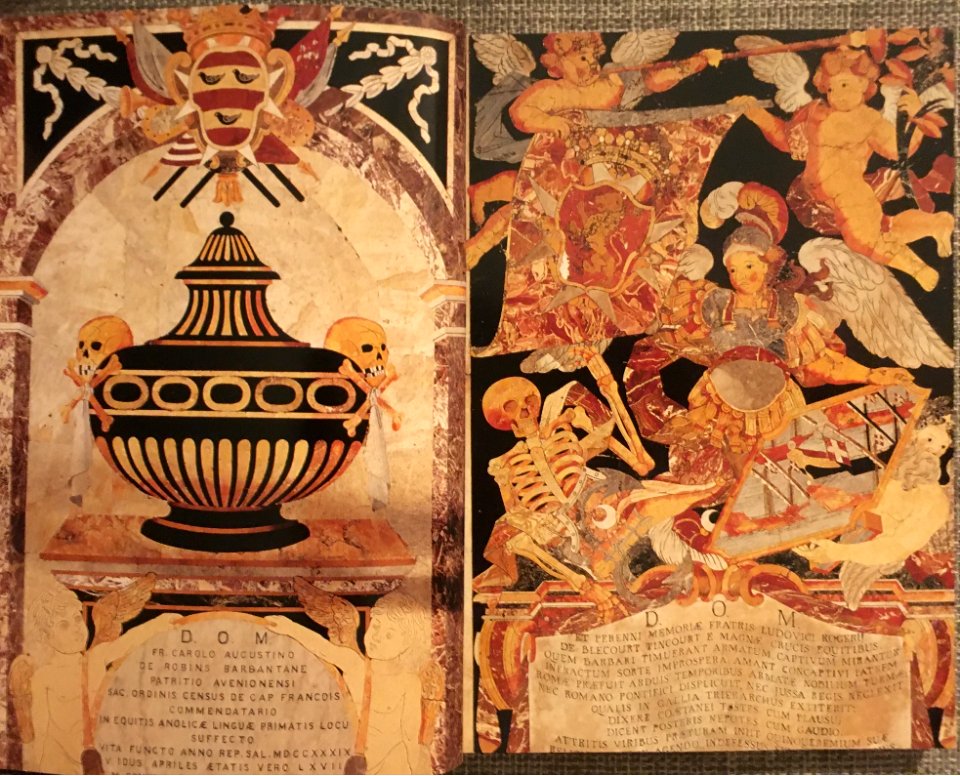 D. O. M
FR. CAROLO AUGUSTINO
DE ROBINS BARBANTANE
PATRITIO AVENIONENSI
SAC. ORDINIS CENSUS DE CAP FRANCOIS
COMMENDATARIO
IN EQUITIS ANGLICÆ LINGUÆ PRIMATIS LOCU
SUFFECTO
VITA FUNCTO ANNO REP. SAL. MDCCXXXIX
V IDUS APRILES ÆTATIS VERO LXVII
D. O. M
ET PERENNI MEMORIÆ FRATRIS LUDOVICI ROGERII
DE BLECOURT TINCOURT E MAGNÆ CRUCIS EQUITIBUS
QUEM BARBARI TIMUERANT ARMATUM CAPTIVUM MIRANTUR
INFRACTUM SORTE IMPROSPERA AMANT CONCAPTIVI PATREM
ROMÆ PRÆFUIT ARDUIS TEMPORIBUS ARMATÆ NOBILIUM TURMÆ
NEC ROMANO PONTIFICI DISPLICUIT, NEC JUSSA REGIS NEGLEXIT
QUALIS IN GALLIA TRIERARCHUS EXTITERIT
DIXERE COÆTANEI TOSTES CUM PLAUSU
DICENT POSTERIS NEPOTES CUM GAUDIO.
ATTRITIS VIRIBUS PRÆTURAM INIIT QUINQUEREMIUM SUÆ
AGENDO INDEFESSUS